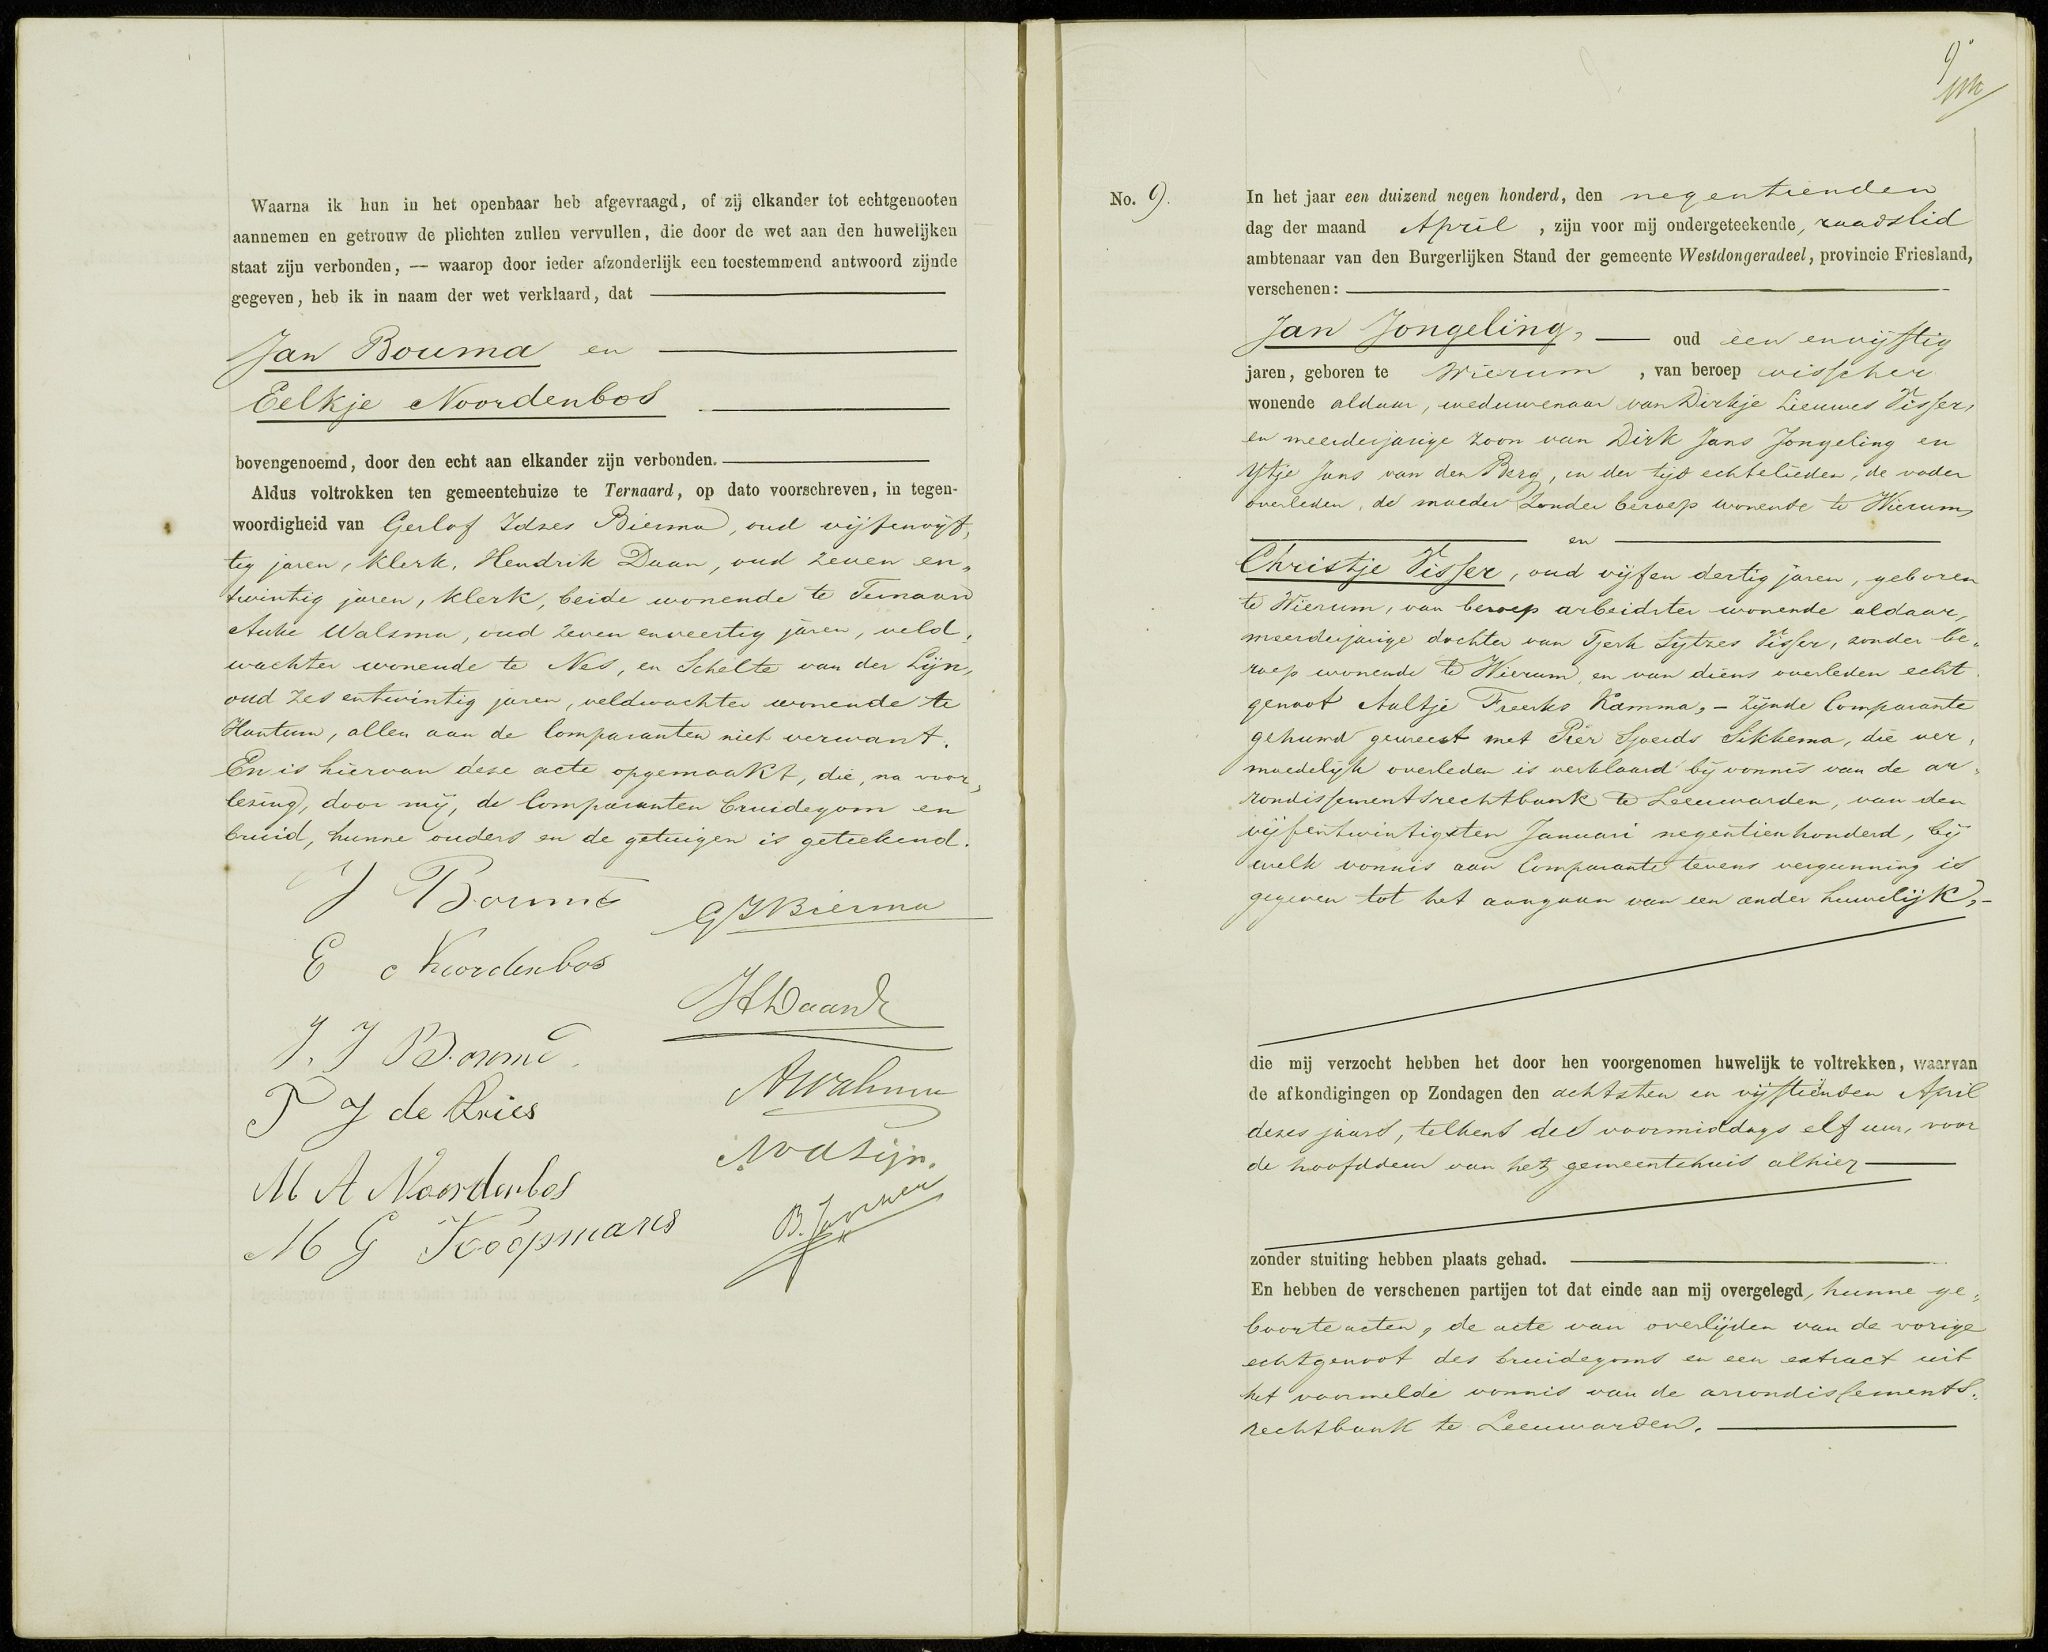 Waarna ik hun in het openbaar heb afgevraagd, of zij elkander tot echtgenooten
aannemen en getrouw de plichten zullen vervullen, die door de wet aan den huwelijken
staat zijn verbonden, — waarop door ieder afzonderlijk een toestemmend antwoord zijnde
gegeven, heb ik in naam der wet verklaard, dat
Jan Bouma en
Eelkje Noordenbos
bovengenoemd, door den echt aan elkander zijn verbonden.
Aldus voltrokken ten gemeentehuize te Ternaard, op dato voorschreven, in tegen-
woordigheid van Gerlof Idzes Bierma, oud vijfenvijf„
tig jaren, klerk, Hendrik Daan, oud zeven en„
twintig jaren, klerk, beide wonende te Ternaard
Auke Walsma, oud zeven enveertig jaren, veld„
wachter wonende te Nes, en Schelte van der Lijn,
oud zes entwintig jaren, veldwachter wonende te
Hantum, allen aan de Comparanten niet verwant.
En is hiervan deze acte opgemaakt, die, na voor„
lezing, door mij, de Comparanten bruidegom en
bruid, hunne ouders en de getuigen is geteekend.
J Bouma
GJBierma
E Noordenbos
HDaan
J. J Bouma
AWalsma
P J de Vries
SvdLijn.
M A Noordenbos
M G Koopmans
9
No. 9.
In het jaar een duizend negen honderd, den negentienden
dag der maand April, zijn voor mij ondergeteekende, raadslid
ambtenaar van den Burgerlijken Stand der gemeente Westdongeradeel, provincie Friesland,
verschenen:
Jan Jongeling, — oud een envijftig
jaren, geboren te Wierum, van beroep visscher
wonende aldaar, weduwenaar van Dirkje Lieuwes Visser,
en meerderjarige zoon van Dirk Jans Jongeling en
Ytje Jans van den Berg, in der tijd echtelieden, de vader
overleden, de moeder zonder beroep wonende te Wierum,
en
Christje Visser, oud vijfen dertig jaren, geboren
te Wierum, van beroep arbeidster wonende aldaar,
meerderjarige dochter van Tjerk Sytzes Visser, zonder be„
roep wonende te Wierum, en van diens overleden echt„
genoot Aaltje Freerks Kamma, — zijnde Comparante
gehuwd geweest met Pier Sjoerds Sikkema, die ver„
moedelijk overleden is verklaard bij vonnis van de ar„
rondissementsrechtbank te Leeuwarden, van den
vijfentwintigsten Januari negentienhonderd, bij
welk vonnis aan Comparante tevens vergunning is
gegeven tot het aangaan van een ander huwelijk, —
die mij verzocht hebben het door hen voorgenomen huwelijk te voltrekken, waarvan
de afkondigingen op Zondagen den achtsten en vijftienden April
dezes jaars, telkens des voormiddags elf uur, voor
de hoofddeur van het gemeentehuis alhier
zonder stuiting hebben plaats gehad.
En hebben de verschenen partijen tot dat einde aan mij overgelegd, hunne ge„
boorteacten, de acte van overlijden van de vorige
echtgenoot des bruidegoms en een extract uit
het voormelde vonnis van de arrondissements„
rechtbank te Leeuwarden.